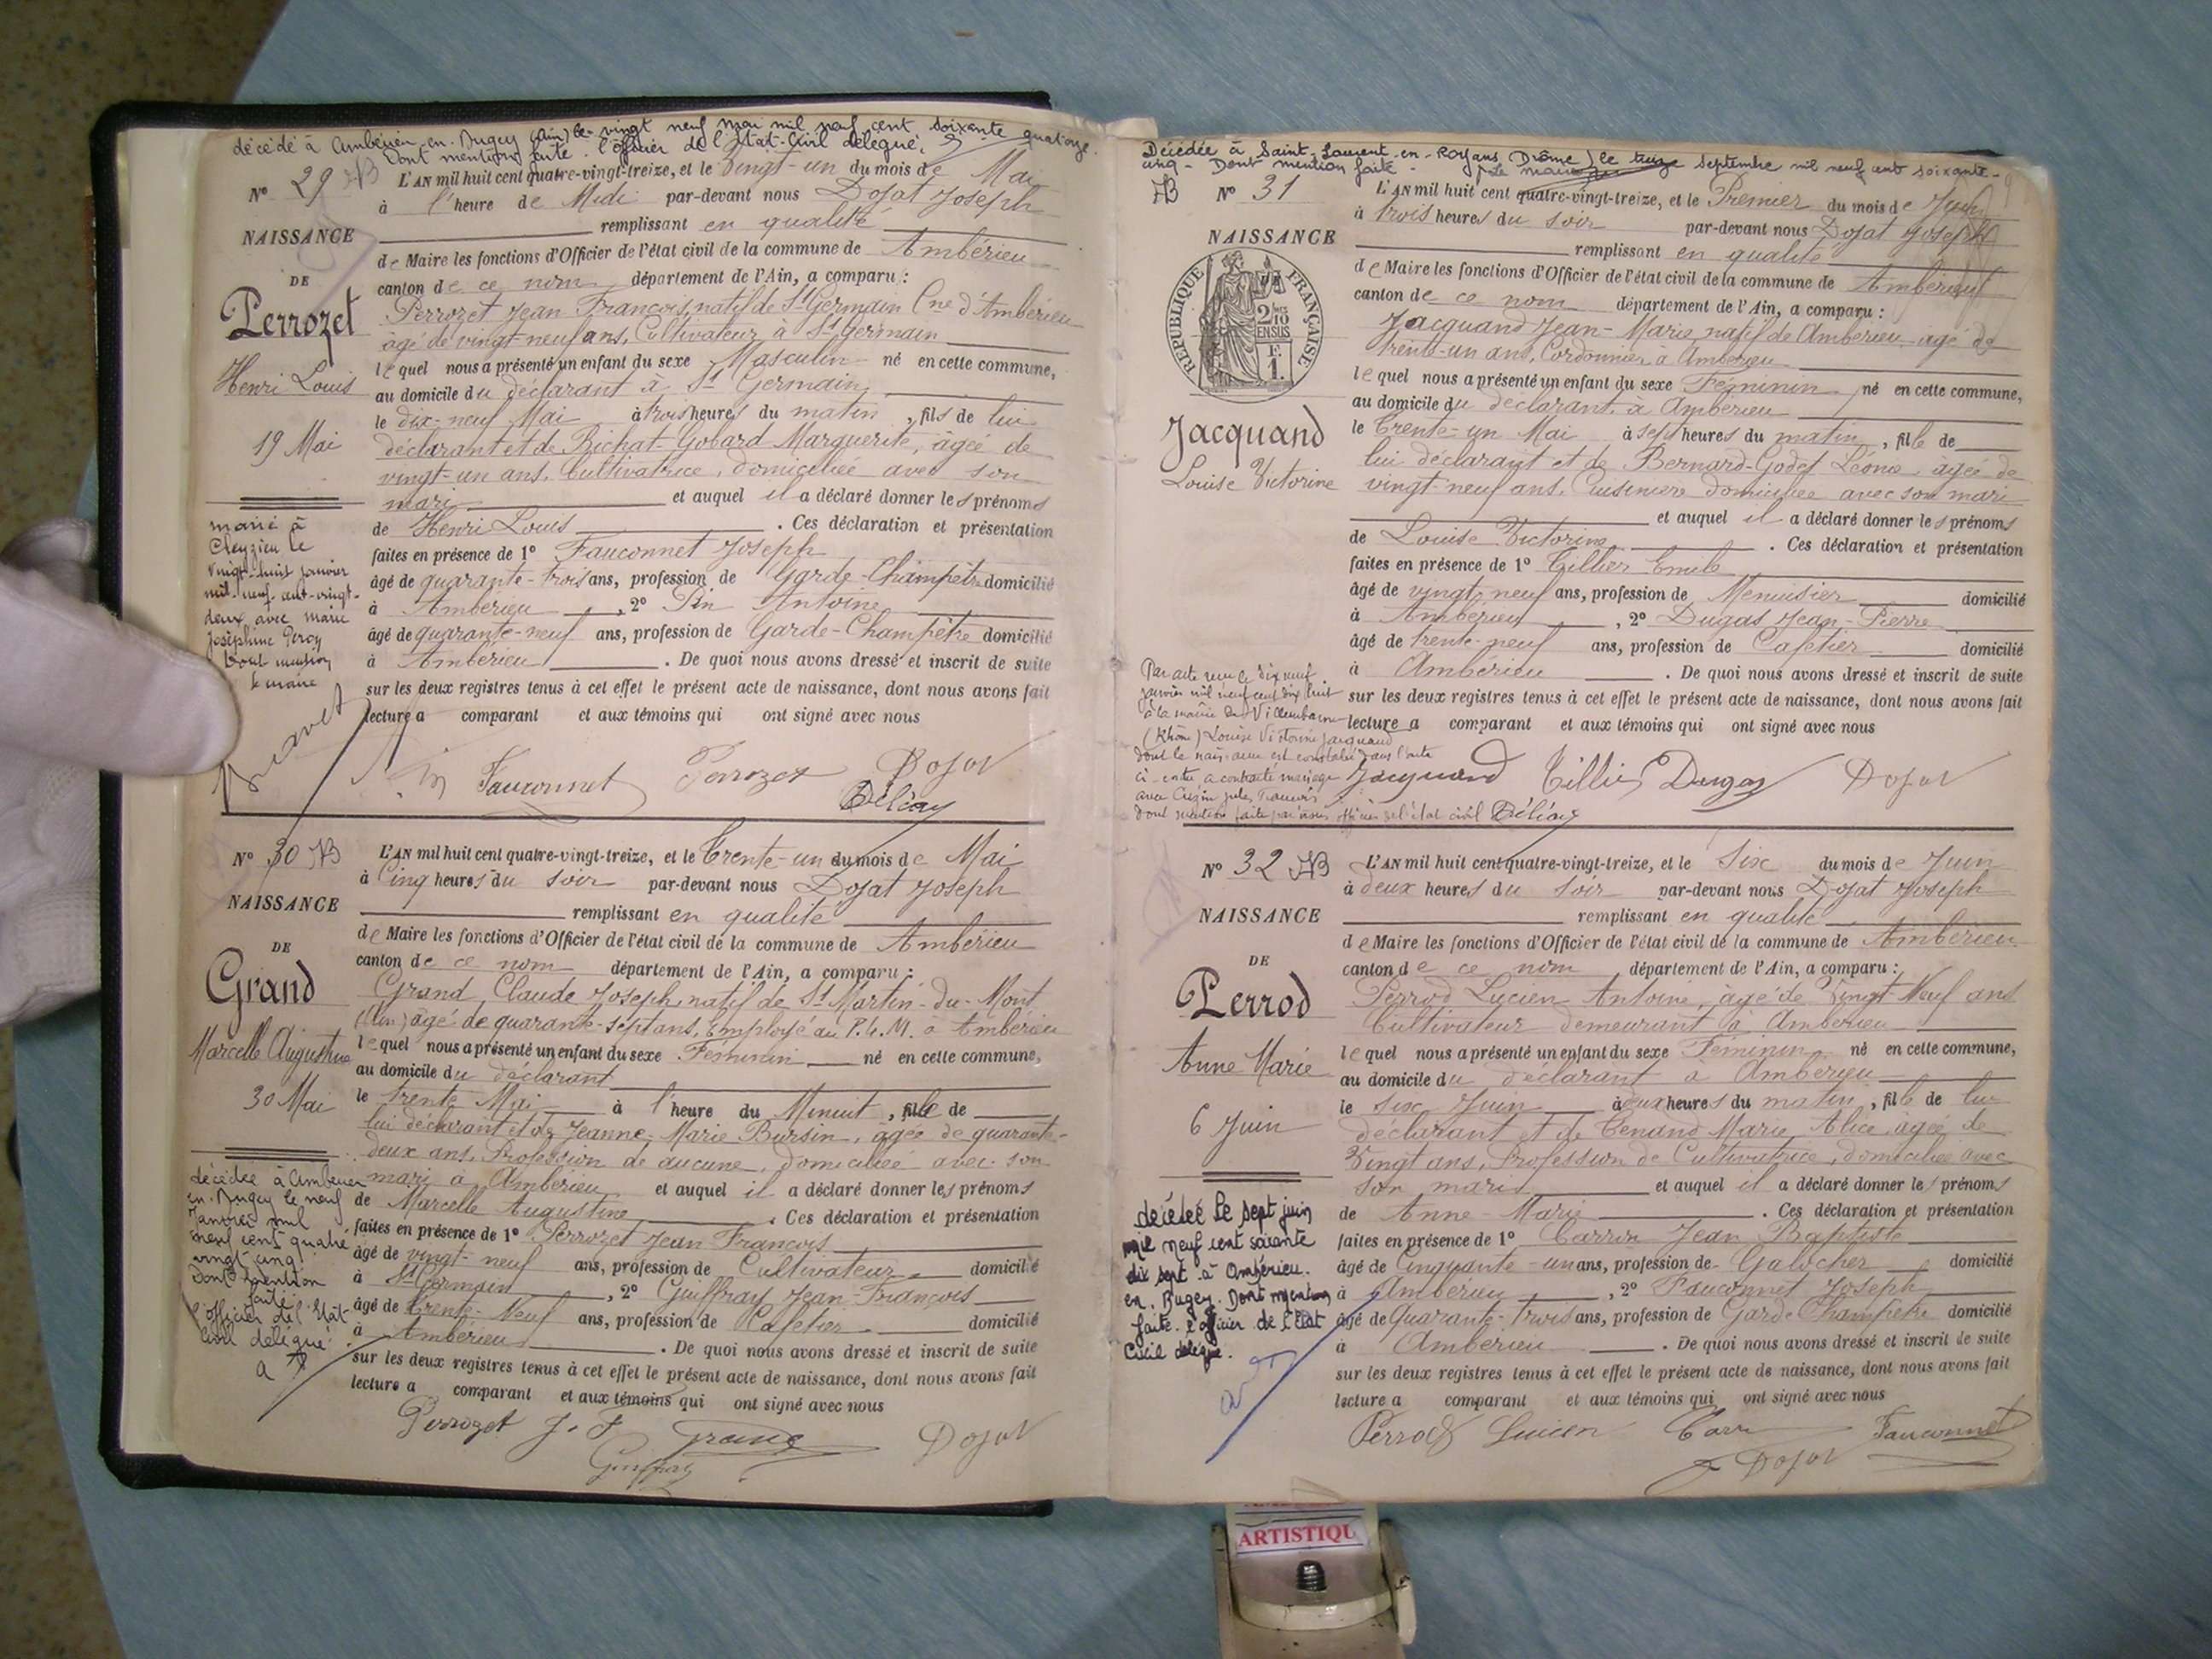 décédé à Ambérieu-en-Bugey (Ain) le vingt neuf mai mil neuf cent soixante quatorze.
Dont mention faite. l'officier de l'Etat-Civil délégué,
N° 29
NAISSANCE
DE
Perrozet
Henri Louis
19 Mai
marié à
Cleyzieu le
vingt-huit janvier
mil-neuf-cent-vingt-
deux avec Marie
Joséphine
Dont mention
le maire
L'AN mil huit cent quatre-vingt-treize, et le Vingt-un du mois de Mai
à l'heure de Midi par-devant nous Dojat Joseph
remplissant en qualité
de Maire les fonctions d'Officier de l'état civil de la commune de Ambérieu
canton de ce nom département de l'Ain, a comparu :
Perrozet Jean François, natif de St Germain Cne d'Ambérieu
agé de vingt-neuf ans, Cultivateur à St Germain
lequel nous a présenté un enfant du sexe Masculin né en cette commune,
au domicile du déclarant à St Germain,
le dix-neuf Mai à trois heures du matin, fils de lui
déclarant et de Bichat-Gobard Marguerite, âgée de
vingt-un ans, Cultivatrice, domiciliée avec son
mari et auquel il a déclaré donner les prénoms
de Henri Louis . Ces déclaration et présentation
faites en présence de 1° Fauconnet Joseph
âgé de quarante-trois ans, profession de Garde-Champêtre domicilié
à Ambérieu , 2° Pin Antoine
âgé de quarante-neuf ans, profession de Garde-Champêtre domicilié
à Ambérieu . De quoi nous avons dressé et inscrit de suite
sur les deux registres tenus à cet effet le présent acte de naissance, dont nous avons fait
lecture a comparant et aux témoins qui ont signé avec nous
Pin Fauconnet Perrozet Dojat
N° 30
NAISSANCE
DE
Grand
Marcelle Augustine
30 Mai
décédée à Ambérieu
en-Bugey le neuf
Janvier mil
neuf cent quatre
vingt cinq
Dont mention
faite.
l'officier de l'Etat-
Civil délégué
L'AN mil huit cent quatre-vingt-treize, et le Trente-un du mois de Mai
à Cinq heures du soir par-devant nous Dojat Joseph
remplissant en qualité
de Maire les fonctions d'Officier de l'état civil de la commune de Ambérieu
canton de ce nom département de l'Ain, a comparu :
Grand Claude Joseph, natif de St Martin-du-Mont
(Ain) âgé de quarante-sept ans, Employé au P.L.M. à Ambérieu
lequel nous a présenté un enfant du sexe Féminin né en cette commune,
au domicile du déclarant
le trente Mai à l'heure du Minuit, fille de
lui déclarant et de Jeanne-Marie Bursin, âgée de quarante-
deux ans, Profession de aucune, domiciliée avec son
mari à Ambérieu et auquel il a déclaré donner les prénoms
de Marcelle Augustine . Ces déclaration et présentation
faites en présence de 1° Perrozet Jean François
âgé de vingt-neuf ans, profession de Cultivateur domicilié
à St Germain , 2° Guiffray Jean-François
âgé de Trente-Neuf ans, profession de Cafetier domicilié
à Ambérieu . De quoi nous avons dressé et inscrit de suite
sur les deux registres tenus à cet effet le présent acte de naissance, dont nous avons fait
lecture a comparant et aux témoins qui ont signé avec nous
Perrozet J. F Grand Dojat
Guiffray
Décédée à Saint-Laurent-en-Royans (Drôme) le treize Septembre mil neuf cent soixante-
cinq - Dont mention faite -
N° 31
NAISSANCE
RÉPUBLIQUE FRANÇAISE
2/10 EN SUS
F. 1.
Jacquand
Louise Victorine
Par acte reçu le dix neuf
janvier mil neuf cent dix huit
à la mairie de Villeurbanne
(Rhône) Louise Victorine Jacquand
dont la naissance est constatée dans l'acte
ci-contre a contracté mariage
avec Jules François
dont mention faite par nous officier de l'état civil Délégué
L'AN mil huit cent quatre-vingt-treize, et le Premier du mois de Juin
à trois heures du soir par-devant nous Dojat Joseph
remplissant en qualité
de Maire les fonctions d'Officier de l'état civil de la commune de Ambérieu
canton de ce nom département de l'Ain, a comparu :
Jacquand Jean-Marie natif de Ambérieu agé de
trente-un ans, Cordonnier à Ambérieu
lequel nous a présenté un enfant du sexe Féminin né en cette commune,
au domicile du déclarant à Ambérieu
le Trente-un Mai à sept heures du matin, fille de
lui déclarant et de Bernard-Godet Léonie, âgée de
vingt-neuf ans, Cuisinière domiciliée avec son mari
et auquel il a déclaré donner les prénoms
de Louise Victorine . Ces déclaration et présentation
faites en présence de 1° Tillier Emile
âgé de vingt-neuf ans, profession de Menuisier domicilié
à Ambérieu , 2° Dugas Jean-Pierre
âgé de trente-neuf ans, profession de Cafetier domicilié
à Ambérieu . De quoi nous avons dressé et inscrit de suite
sur les deux registres tenus à cet effet le présent acte de naissance, dont nous avons fait
lecture a comparant et aux témoins qui ont signé avec nous
Jacquand Tillier Dugas Dojat
N° 32
NAISSANCE
DE
Perrod
Anne Marie
6 Juin
décédée le sept juin
mil neuf cent soixante
dix sept à Ambérieu.
en. Bugey. Dont mention
faite. l'officier de l'Etat
Civil délégué.
L'AN mil huit cent quatre-vingt-treize, et le Six du mois de Juin
à deux heures du soir par-devant nous Dojat Joseph
remplissant en qualité
de Maire les fonctions d'Officier de l'état civil de la commune de Ambérieu
canton de ce nom département de l'Ain, a comparu :
Perrod Lucien Antoine, âgé de Vingt Neuf ans
Cultivateur demeurant à Ambérieu
lequel nous a présenté un enfant du sexe Féminin né en cette commune,
au domicile du déclarant à Ambérieu
le six Juin à deux heures du matin, fille de lui
déclarant et de Tenand Marie Alice, âgée de
Vingt ans, Profession de Cultivatrice, domiciliée avec
son mari et auquel il a déclaré donner les prénoms
de Anne-Marie . Ces déclaration et présentation
faites en présence de 1° Carrin Jean Baptiste
âgé de Cinquante-un ans, profession de Galocher domicilié
à Ambérieu , 2° Fauconnet Joseph
âgé de Quarante-trois ans, profession de Garde Champêtre domicilié
à Ambérieu . De quoi nous avons dressé et inscrit de suite
sur les deux registres tenus à cet effet le présent acte de naissance, dont nous avons fait
lecture a comparant et aux témoins qui ont signé avec nous
Perrod Lucien Carrin Fauconnet
J Dojat
ARTISTIQU